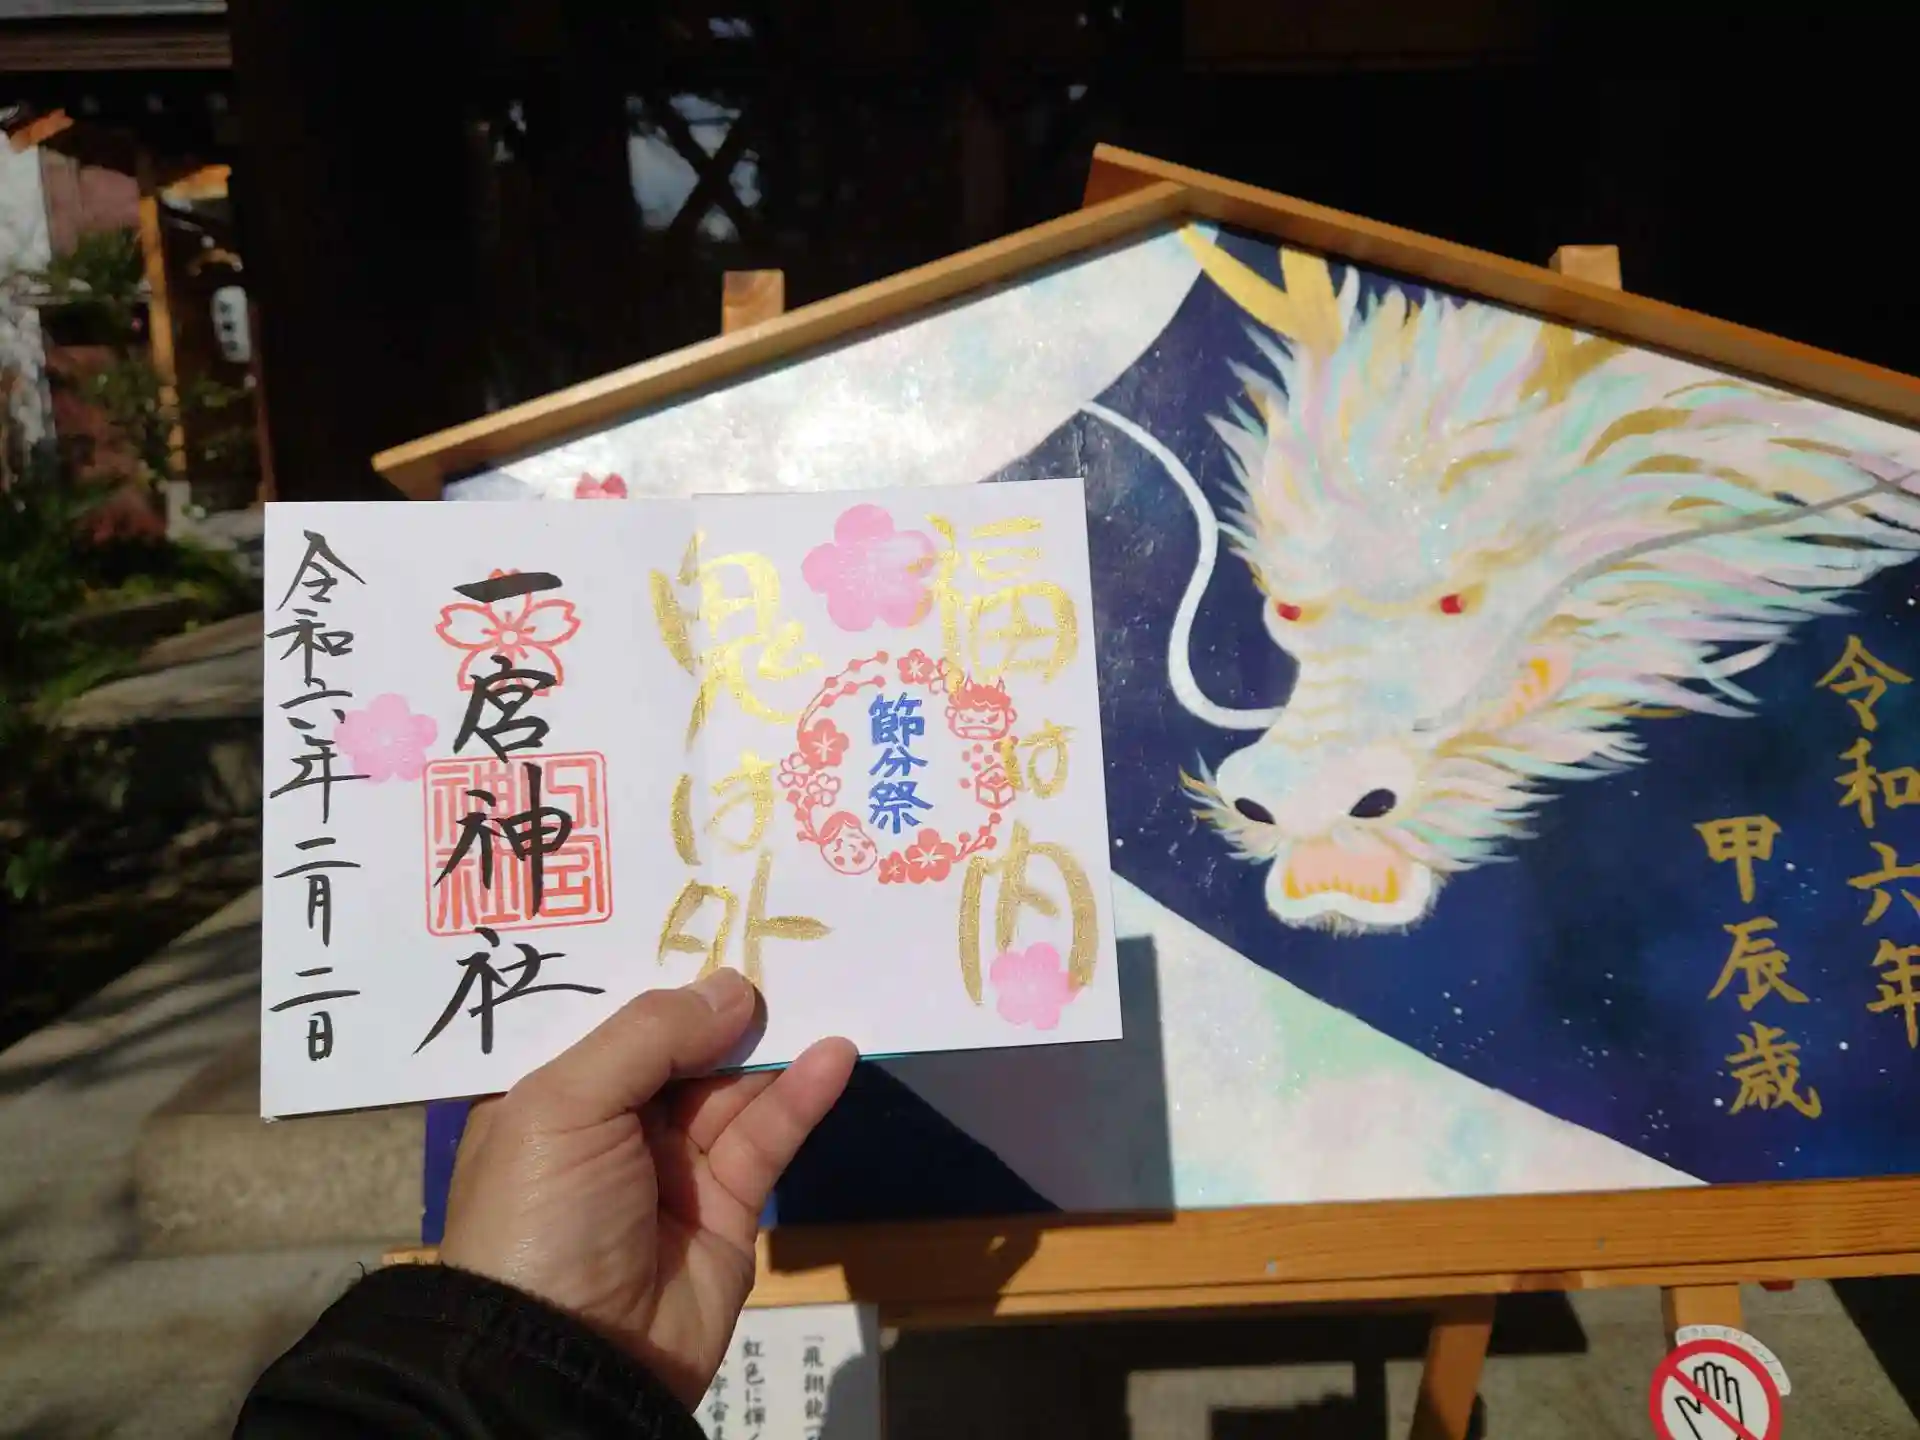 福は内
鬼は外
節分祭
一宮神社
一宮神社
令和六年二月二日
令和六年
甲辰歳
「飛翔龍
虹色に輝